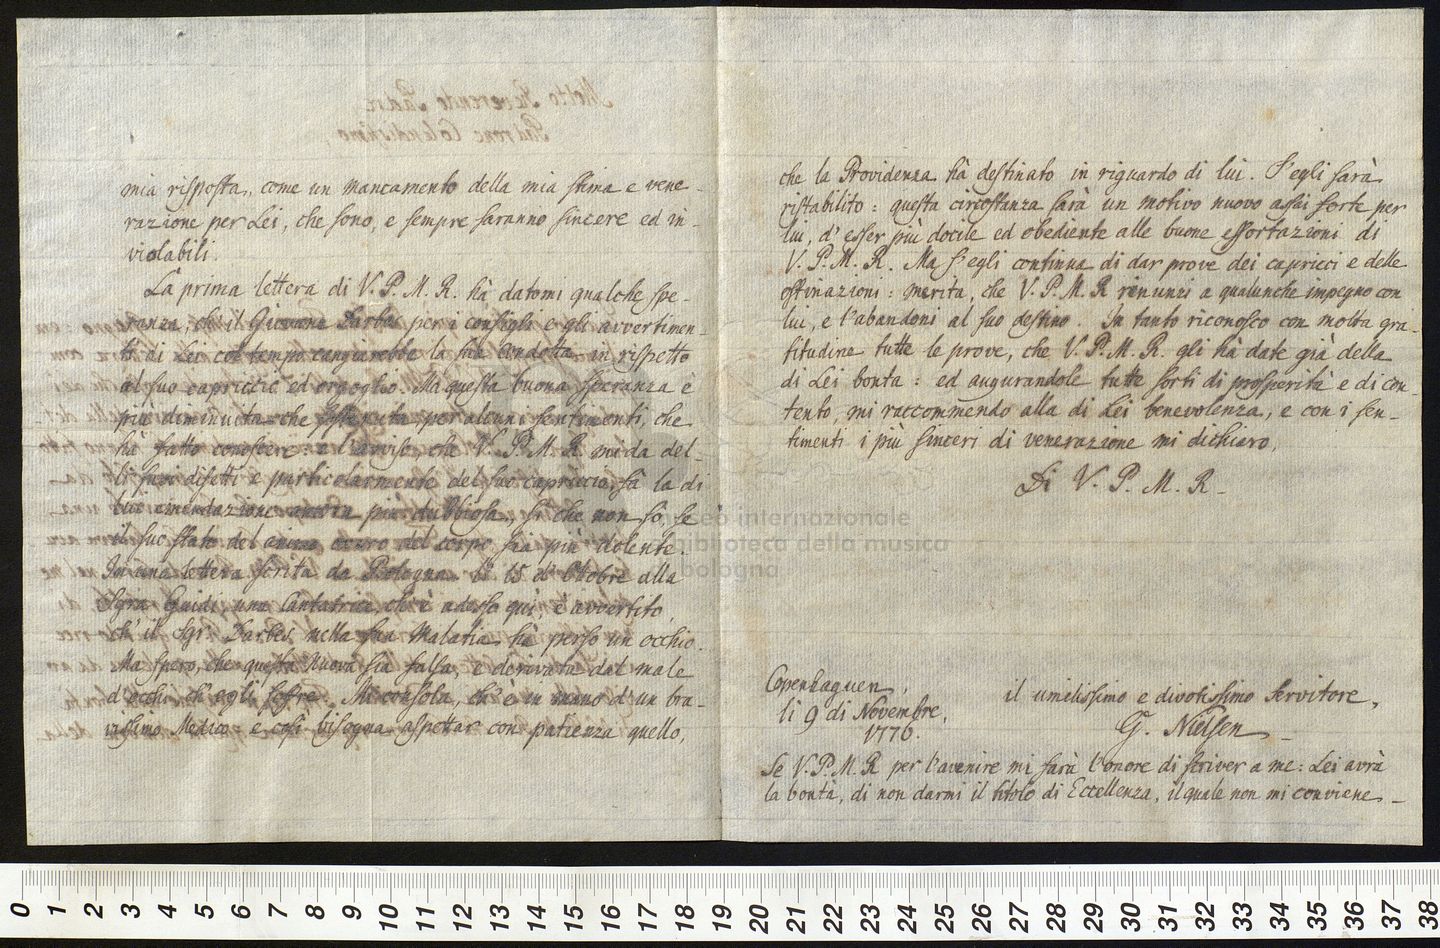 mia risposta, come un mancamento della mia stima e vene-
razione per Lei, che sono, e sempre saranno sincere ed in-
violabili.
La prima lettera di V. P. M. R. hà datomi qualche spe-
ranza, ch'il Giovane Darbes per i consigli e gli avvertimen-
ti di Lei col tempo cangiarebbe la sua condotta in rispetto
al suo capriccio ed orgoglio. Ma questa buona speranza è
più diminuita che per alcuni sentimenti, che
hà fatto conoscere: e l'aviso che V. P. M. R. mi da del-
li suoi difetti e particolarmente del suo capriccio, fà la di
lui emendazione ancora più dubbiosa, si che non sò, se
il suo stato del animo ouero del corpo sia più dolente.
In una lettera scrita da Bologna li 15 d'Ottobre alla
Sgra Guidi, una Cantatrice, ch'è adesso quì, è avvertito,
ch'il Sgr. Darbes nella sua Malatia hà perso un occhio.
Ma spero, che questa Nuova sia falsa, e derivata dal male
d'occhi ch'egli sofre. Mi consola, ch'è in mano d'un bra-
vissimo Medico, e così bisogna aspettar con patienza quello,
che la Providenza hà destinato in riguardo di lui. S'egli sarà
ristabilito: questa circostanza sarà un motivo nuovo assai forte per
lui, d'esser più docile ed obediente alle buone essortazioni di
V. P. M. R. Ma s'egli continua di dar prove dei capricci e delle
ostinazioni: merita, che V. P. M. R renunzi a qualunche impegno con
lui, e l'abandoni al suo destino. In tanto riconosco con molta gra-
titudine tutte le prove, che V. P. M. R. gli hà date già della
di Lei bonta: ed augurandole tutte sorti di prosperità e di con-
tento, mi raccommendo alla di Lei benevolenza, e con i sen-
timenti i più sinceri di venerazione mi dichiaro,
Di V. P. M. R.
Copenhaguen,
li 9 di Novembre,
1776.
il umilissimo e divotissimo Servitore,
G. Nielsen
Se V. P. M. R per l'avenire mi farà l'onore di scriver a me: Lei avrà
la bontà, di non darmi il titolo di Eccellenza, il quale non mi conviene
museo internazionale
e biblioteca della musica
di bologna
0 1 2 3 4 5 6 7 8 9 10 11 12 13 14 15 16 17 18 19 20 21 22 23 24 25 26 27 28 29 30 31 32 33 34 35 36 37 38